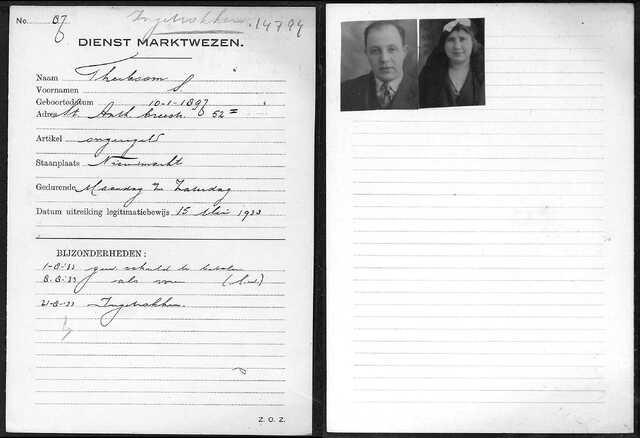 No. 87 Ingetrokken. 14794
DIENST MARKTWEZEN.
Naam
Voornamen S
Geboortedatum 10-1-1897
Adres St. Anth. breestr. 52
Artikel ongeregeld
Staanplaats Nieuwmarkt
Gedurende Maandag t/m Zaterdag
Datum uitreiking legitimatiebewijs 15 Mei 1933
BIJZONDERHEDEN:
1-8-33 schuld te betalen
8-8-33 als voren
21-8-33 Ingetrokken.
Z. O. Z.